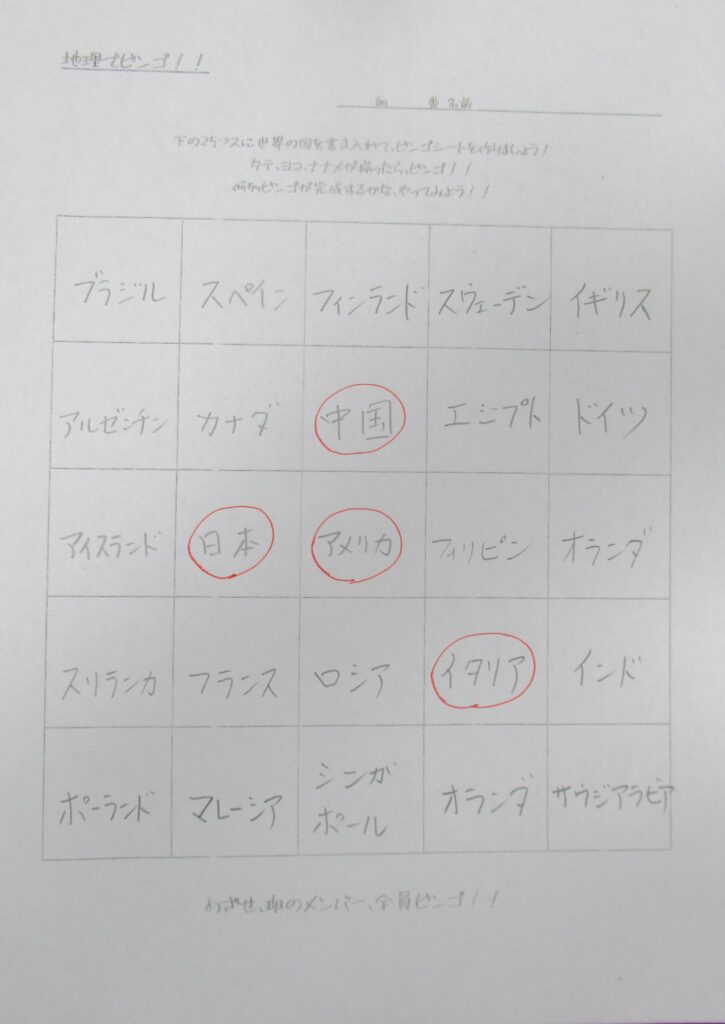 地理でビンゴ!!
組 番 名前
下の25マスに世界の国を書き入れて、ビンゴシートを作りましょう!
タテ、ヨコ、ナナメが揃ったら、ビンゴ!!
何列ビンゴが完成するかな、やってみよう!!
ブラジル スペイン フィンランド スウェーデン イギリス
アルゼンチン カナダ 中国 エジプト ドイツ
アイスランド 日本 アメリカ フィリピン オランダ
スリランカ フランス ロシア イタリア インド
ポーランド マレーシア シンガ オランダ サウジアラビア
ポール
めざせ、班のメンバー、全員ビンゴ!!